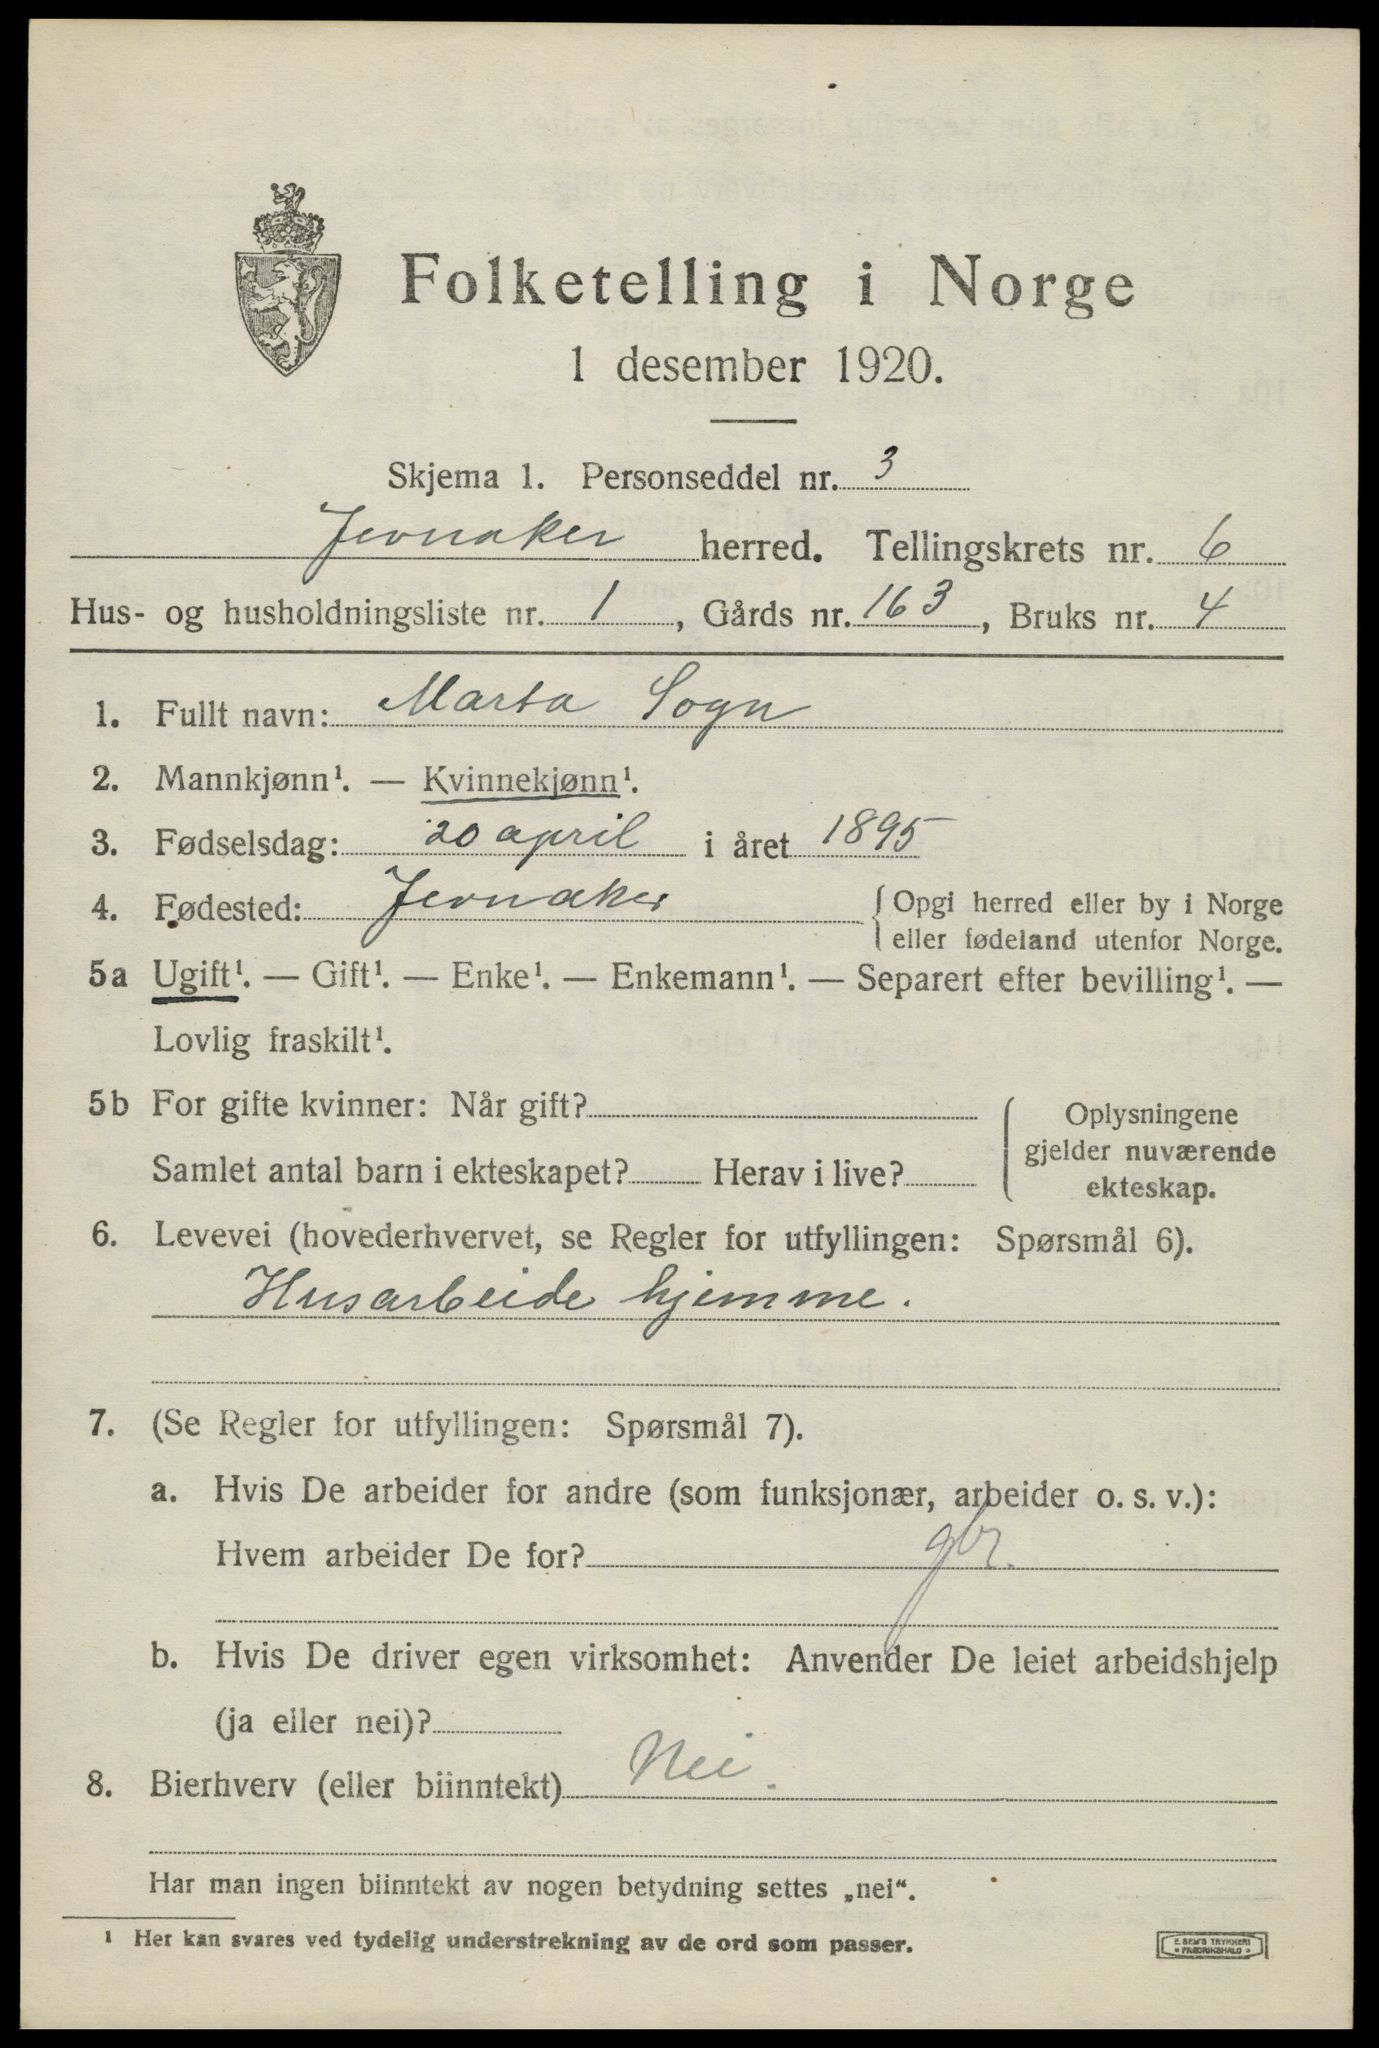 Folketelling i Norge
1 desember 1920.
Skjema 1. Personseddel nr. 3
Jevnaker herred. Tellingskrets nr. 6
Hus- og husholdningsliste nr. 1, Gårds nr. 163, Bruks nr. 4
1. Fullt navn: Marta Sogn
2. Mannkjønn¹. — Kvinnekjønn¹.
3. Fødselsdag: 20 april i året 1895
4. Fødested: Jevnaker { Opgi herred eller by i Norge
eller fødeland utenfor Norge.
5a Ugift¹. — Gift¹. — Enke¹. — Enkemann¹. — Separert efter bevilling¹. —
Lovlig fraskilt¹.
5b For gifte kvinner: Når gift? { Oplysningene
gjelder nuværende
Samlet antal barn i ekteskapet? Herav i live? ekteskap.
6. Levevei (hovederhvervet, se Regler for utfyllingen: Spørsmål 6).
Husarbeide hjemme.
7. (Se Regler for utfyllingen: Spørsmål 7).
a. Hvis De arbeider for andre (som funksjonær, arbeider o. s. v.):
Hvem arbeider De for? gbr.
b. Hvis De driver egen virksomhet: Anvender De leiet arbeidshjelp
(ja eller nei)?
8. Bierhverv (eller biinntekt) Nei.
Har man ingen biinntekt av nogen betydning settes „nei“.
¹ Her kan svares ved tydelig understrekning av de ord som passer.
E. SEM'S TRYKKERI
• FREDRIKSHALD •